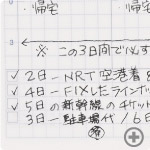 ・帰宅
・帰宅
3
※ この3日間で必ず
✓ 2日－NRT空港着
✓ 4日－FIXしたラインナ
✓ 5日の新幹線のチケット
3日－駐車場代／6日